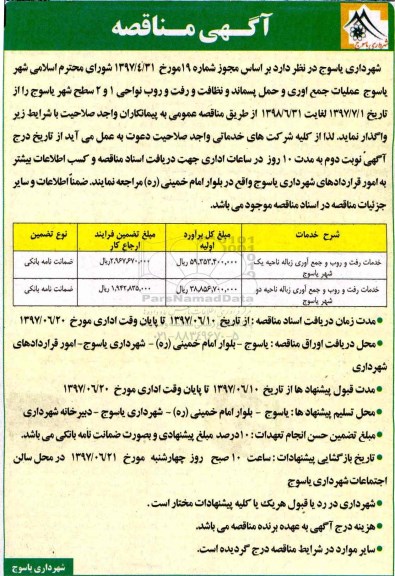 آگهی مناقصه
شهرداری یاسوج
شهرداری یاسوج در نظر دارد بر اساس مجوز شماره ۱۹مورخ ۱۳۹۷/۴/۳۱ شورای محترم اسلامی شهر
یاسوج عملیات جمع اوری و حمل پسماند و نظافت و رفت و روب نواحی ۱ و ۲ سطح شهر یاسوج را از
تاریخ ۱۳۹۷/۷/۱ لغایت ۱۳۹۸/۶/۳۱ از طریق مناقصه عمومی به پیمانکاران واجد صلاحیت با شرایط زیر
واگذار نماید. لذا از کلیه شرکت های خدماتی واجد صلاحیت دعوت به عمل می آید از تاریخ درج
آگهی نوبت دوم به مدت ۱۰ روز در ساعات اداری جهت دریافت اسناد مناقصه و کسب اطلاعات بیشتر
به امور قراردادهای شهرداری یاسوج واقع در بلوار امام خمینی (ره) مراجعه نمایند. ضمناً اطلاعات و سایر
جزئیات مناقصه در اسناد مناقصه موجود می باشد.
شرح خدمات مبلغ کل براورد اولیه مبلغ تضمین فرایند ارجاع کار نوع تضمین
خدمات رفت و روب و جمع آوری زباله ناحیه یک شهر یاسوج ۵۹,۳۵۳,۴۰۰,۰۰۰ ریال ۲,۹۶۷,۶۷۰,۰۰۰ریال ضمانت نامه بانکی
خدمات رفت و روب و جمع آوری زباله ناحیه دو شهر یاسوج ۳۸,۸۵۶,۷۰۰,۰۰۰ ریال ۱,۹۴۲,۸۳۵,۰۰۰ ریال ضمانت نامه بانکی
ParsNamadData
۰۲۱-۸۸۳۴۹۶۷۰-۵
• مدت زمان دریافت اسناد مناقصه : از تاریخ ۱۳۹۷/۰۶/۱۰ تا پایان وقت اداری مورخ ۱۳۹۷/۰۶/۲۰
• محل دریافت اوراق مناقصه : یاسوج - بلوار امام خمینی (ره) - شهرداری یاسوج- امور قراردادهای
شهرداری
• مدت قبول پیشنهاد ها از تاریخ ۱۳۹۷/۰۶/۱۰ تا پایان وقت اداری مورخ ۱۳۹۷/۰۶/۲۰
• محل تسلیم پیشنهاد ها : یاسوج - بلوار امام خمینی (ره) - شهرداری یاسوج -دبیرخانه شهرداری
• مبلغ تضمین حسن انجام تعهدات : ۱۰درصد مبلغ پیشنهادی و بصورت ضمانت نامه بانکی می باشد.
• تاریخ بازگشایی پیشنهادات : ساعت ۱۰ صبح روز چهارشنبه مورخ ۱۳۹۷/۰۶/۲۱ در محل سالن
اجتماعات شهرداری یاسوج
• شهرداری در رد یا قبول هریک یا کلیه پیشنهادات مختار است .
• هزینه درج آگهی به عهده برنده مناقصه می باشد.
• سایر موارد در شرایط مناقصه درج گردیده است.
شهرداری یاسوج